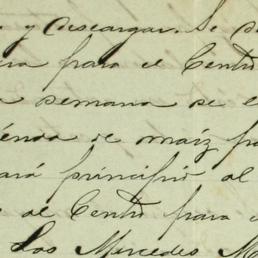 y descargar. Se
para el Centro
semana se
de maíz
principio al
al Centro para
Las Mercedes